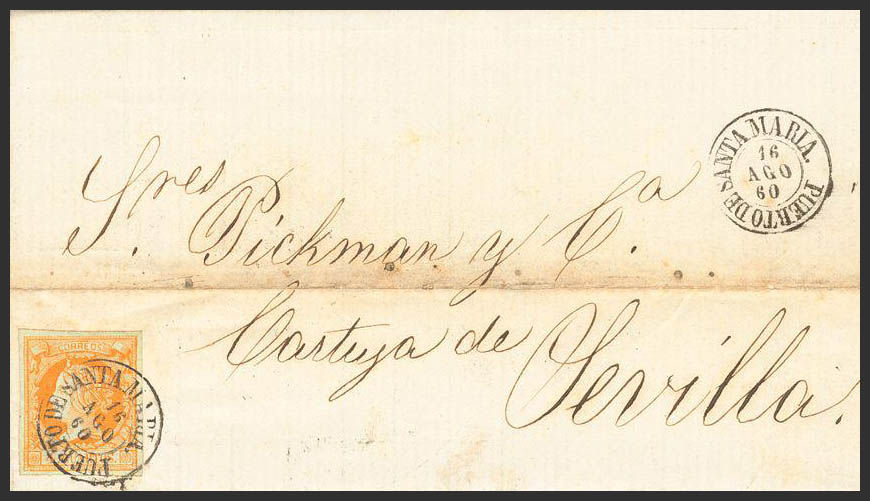 PUERTO DE SANTA MARIA.
16
AGO
60
Sres Pickman y Cª
Cartuja de
Sevilla.
CORREOS
PUERTO DE SANTA MARIA.
16
AGO
60